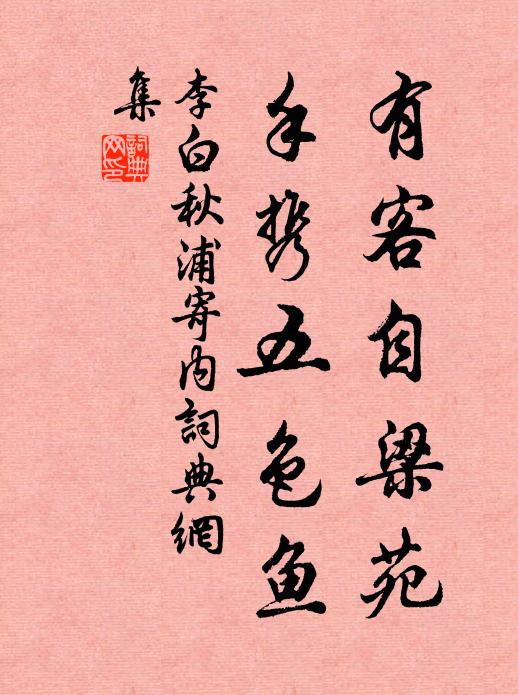 有客自梁苑
手携五色鱼
李白秋浦寄内詞典網
集
詞典
网印